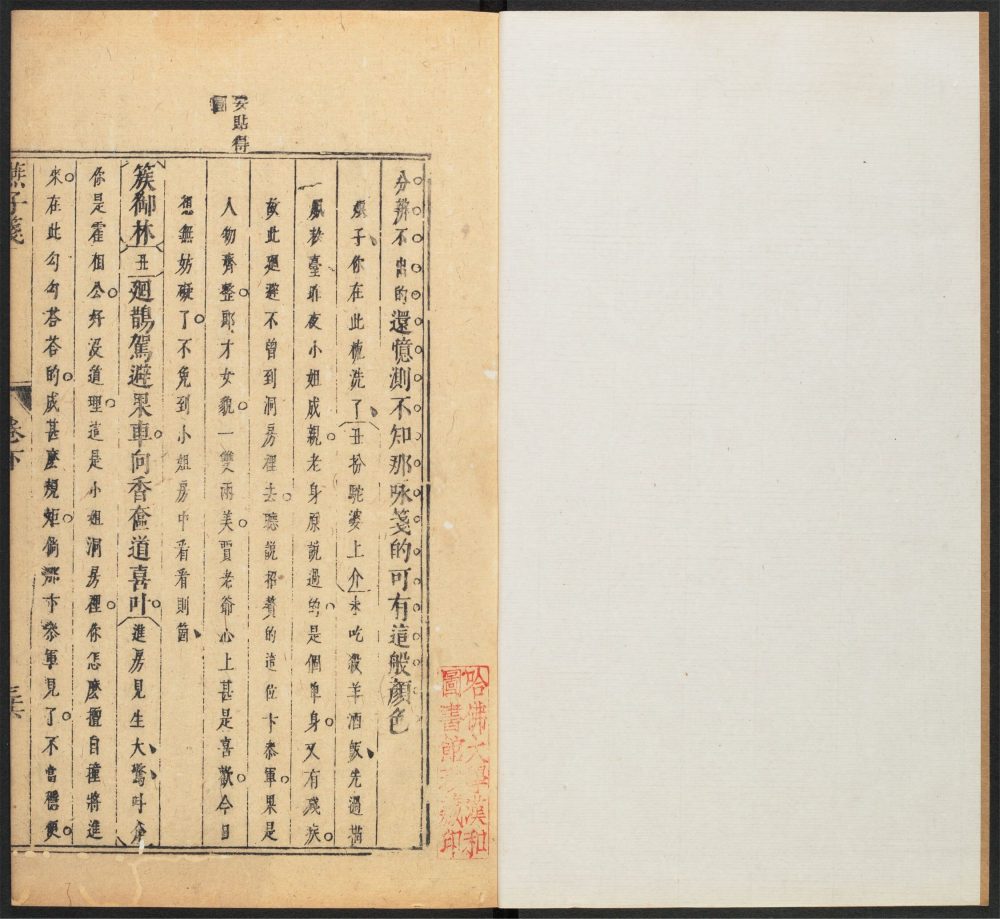 妥貼得
分辨不出的還憶測不知那咏箋的可有這般顏色
子你在此梳洗了丑扮駝婆上介未吃殺羊酒飯先過
老臺昨夜小姐成親老身原說過的是個單身又有殘疾
故此廻避不曾到洞房裡去聽說招贅的這位卞叅軍果是
人物齊整郎才女貌一雙兩美賈老爺心上甚是喜歡今日
想無妨礙了不免到小姐房中看看則箇
簇御林丑廻鵲駕避果車向香奩道喜叶進房見生大驚叫介
你是霍相公好沒道理這是小姐洞房裡你怎麼擅自撞將進
來在此勾勾荅荅的成甚麼規矩倘那卞叅軍見了不當穩便
燕子箋
卷下
哈佛大學漢和
圖書館珍藏印